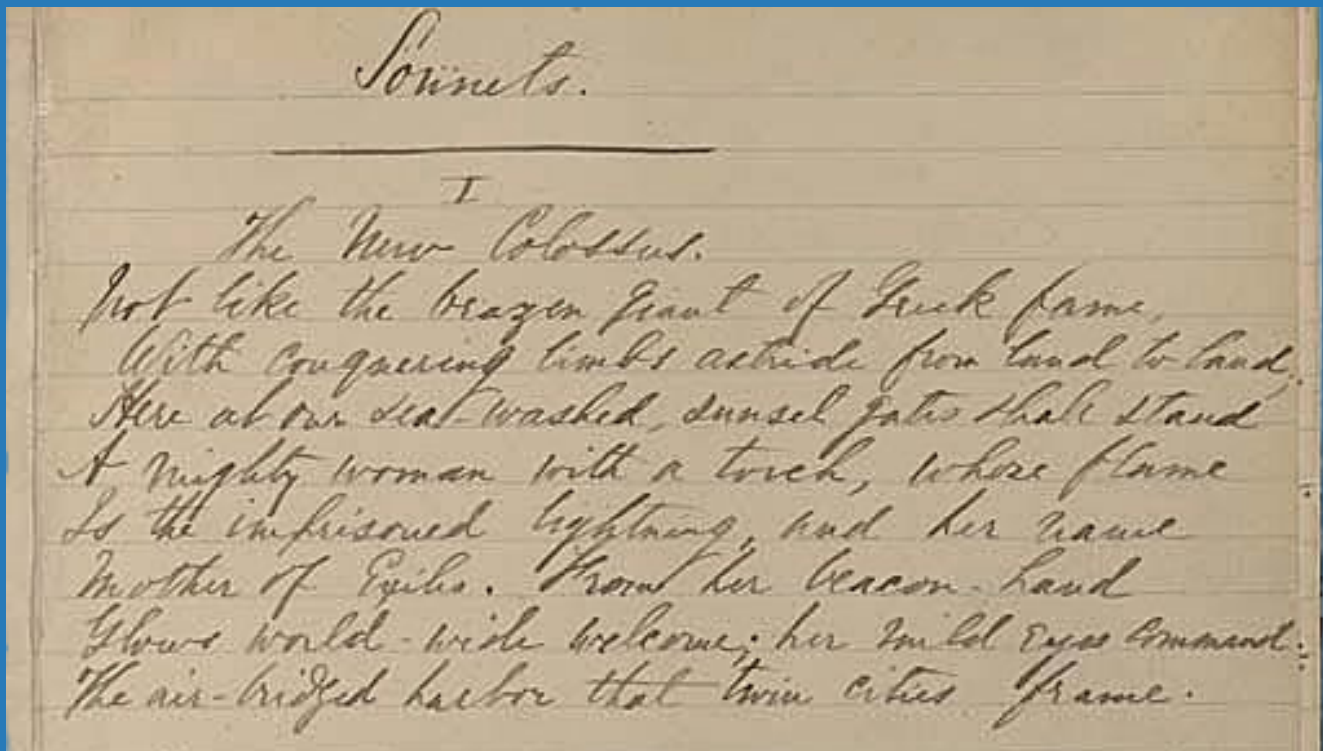 Sonnets.
I
The New Colossus.
Not like the brazen giant of Greek fame,
With conquering limbs astride from land to land;
Here at our sea-washed, sunset gates shall stand
A mighty woman with a torch, whose flame
Is the imprisoned lightning, and her name
Mother of Exiles. From her beacon-hand
Glows world-wide welcome; her mild eyes command
The air-bridged harbor that twin cities frame.